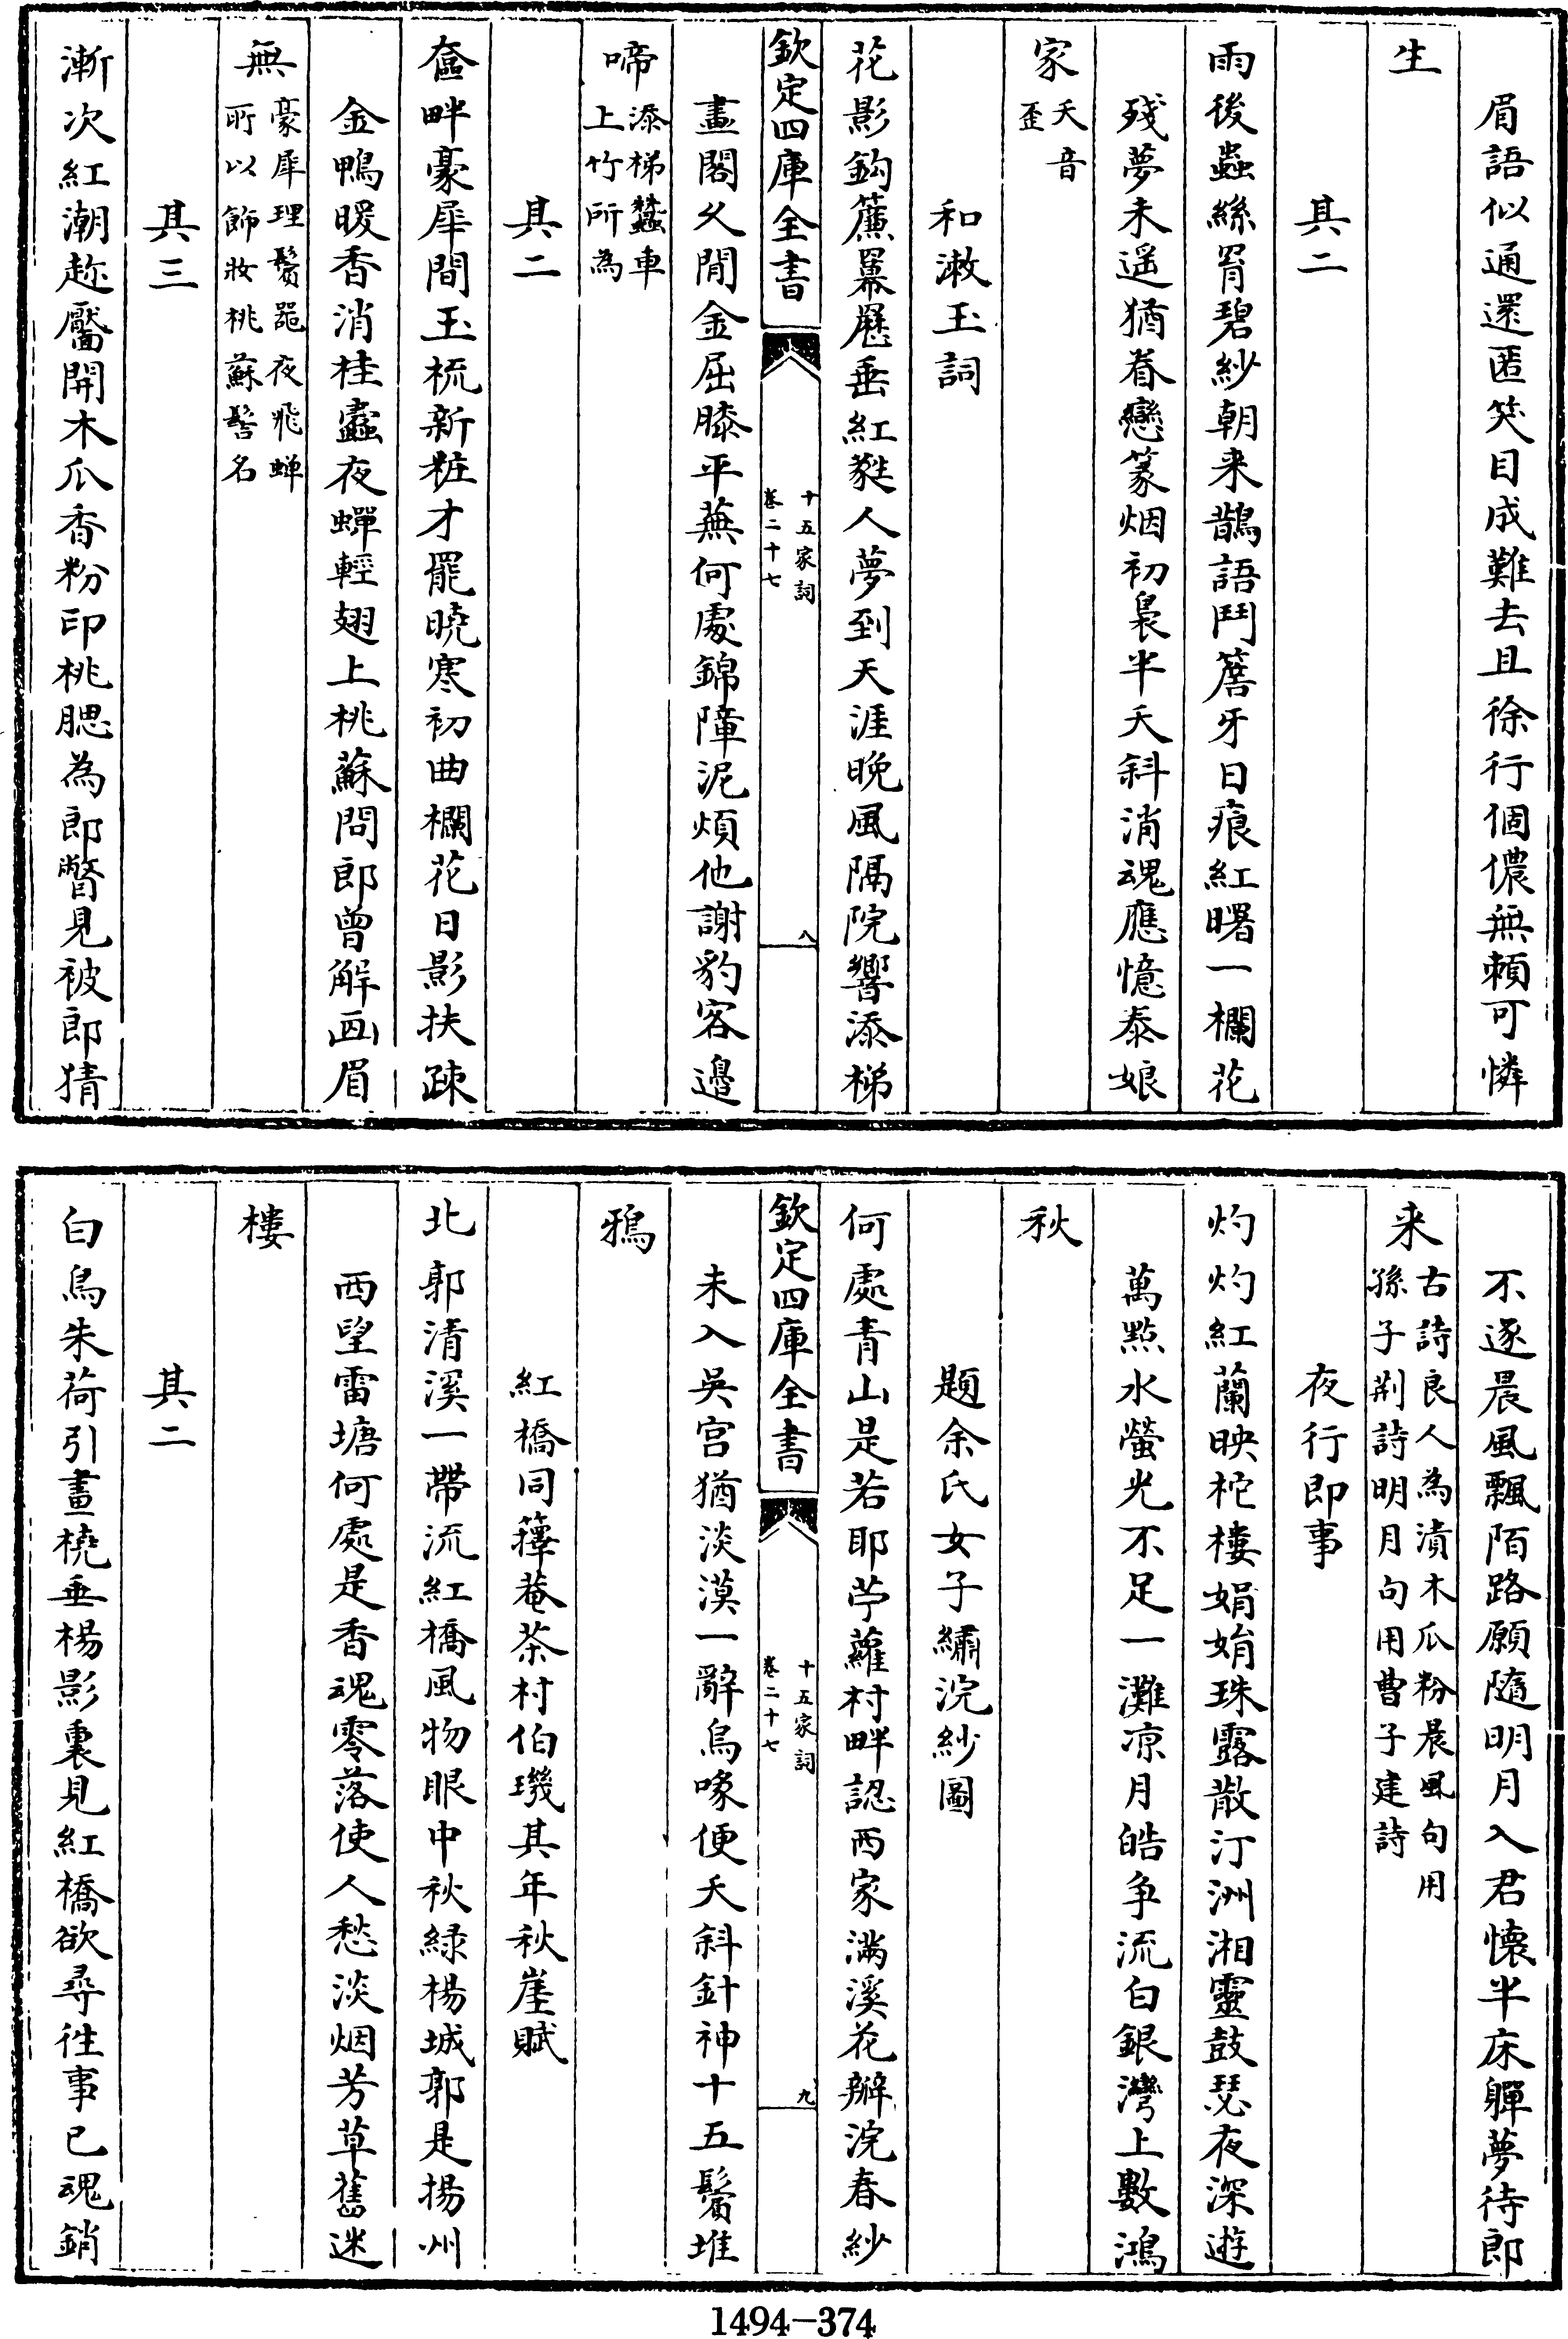 眉語似通還匿笑目成難去且徐行個儂無賴可憐
生
其二
雨後蟲絲罥碧紗朝来鵲語鬥簷牙日痕紅曙一欄花
殘夢未遥猶眷戀篆烟初裊半夭斜消魂應憶泰娘
家夭音
歪
和漱玉詞
花影鈎簾羃䍥垂紅蕤人夢到天涯晚風隔院響添梯
欽定四庫全書
十五家詞
卷二十七
八
畫閣久閒金屈膝平蕪何處錦障泥煩他謝豹客邉
啼添梯蠶車
上竹所為
其二
奩畔豪犀間玉梳新粧才罷曉寒初曲欄花日影扶疎
金鴨暖香消桂蠹夜蟬輕翅上桃蘇問郎曾解画眉
無豪犀理鬢器夜飛蟬
所以飾妝桃蘇髻名
其三
漸次紅潮趂靨開木瓜香粉印桃腮為郎瞥見被郎猜
不逐晨風飄陌路願隨明月入君懷半床嚲夢待郎
来古詩良人為漬木瓜粉晨風句用
孫子荆詩明月句用曹子建詩
夜行即事
灼灼紅蘭映柁樓娟娟珠露散汀洲湘靈鼓瑟夜深遊
萬點水螢光不足一灘凉月皓争流白銀灣上數鴻
秋
題余氏女子繡浣紗圖
何處青山是若耶苧蘿村畔認西家滿溪花瓣浣春紗
欽定四庫全書
十五家詞
卷二十七
九
未入吳宫猶淡漠一辭烏喙便夭斜針神十五鬢堆
鴉
紅橋同籜菴茶村伯璣其年秋崖賦
北郭清溪一帶流紅橋風物眼中秋緑楊城郭是揚州
西望雷塘何處是香魂零落使人愁淡烟芳草舊迷
樓
其二
白鳥朱荷引畫橈垂楊影裏見紅橋欲尋徃事已魂銷
1494-374